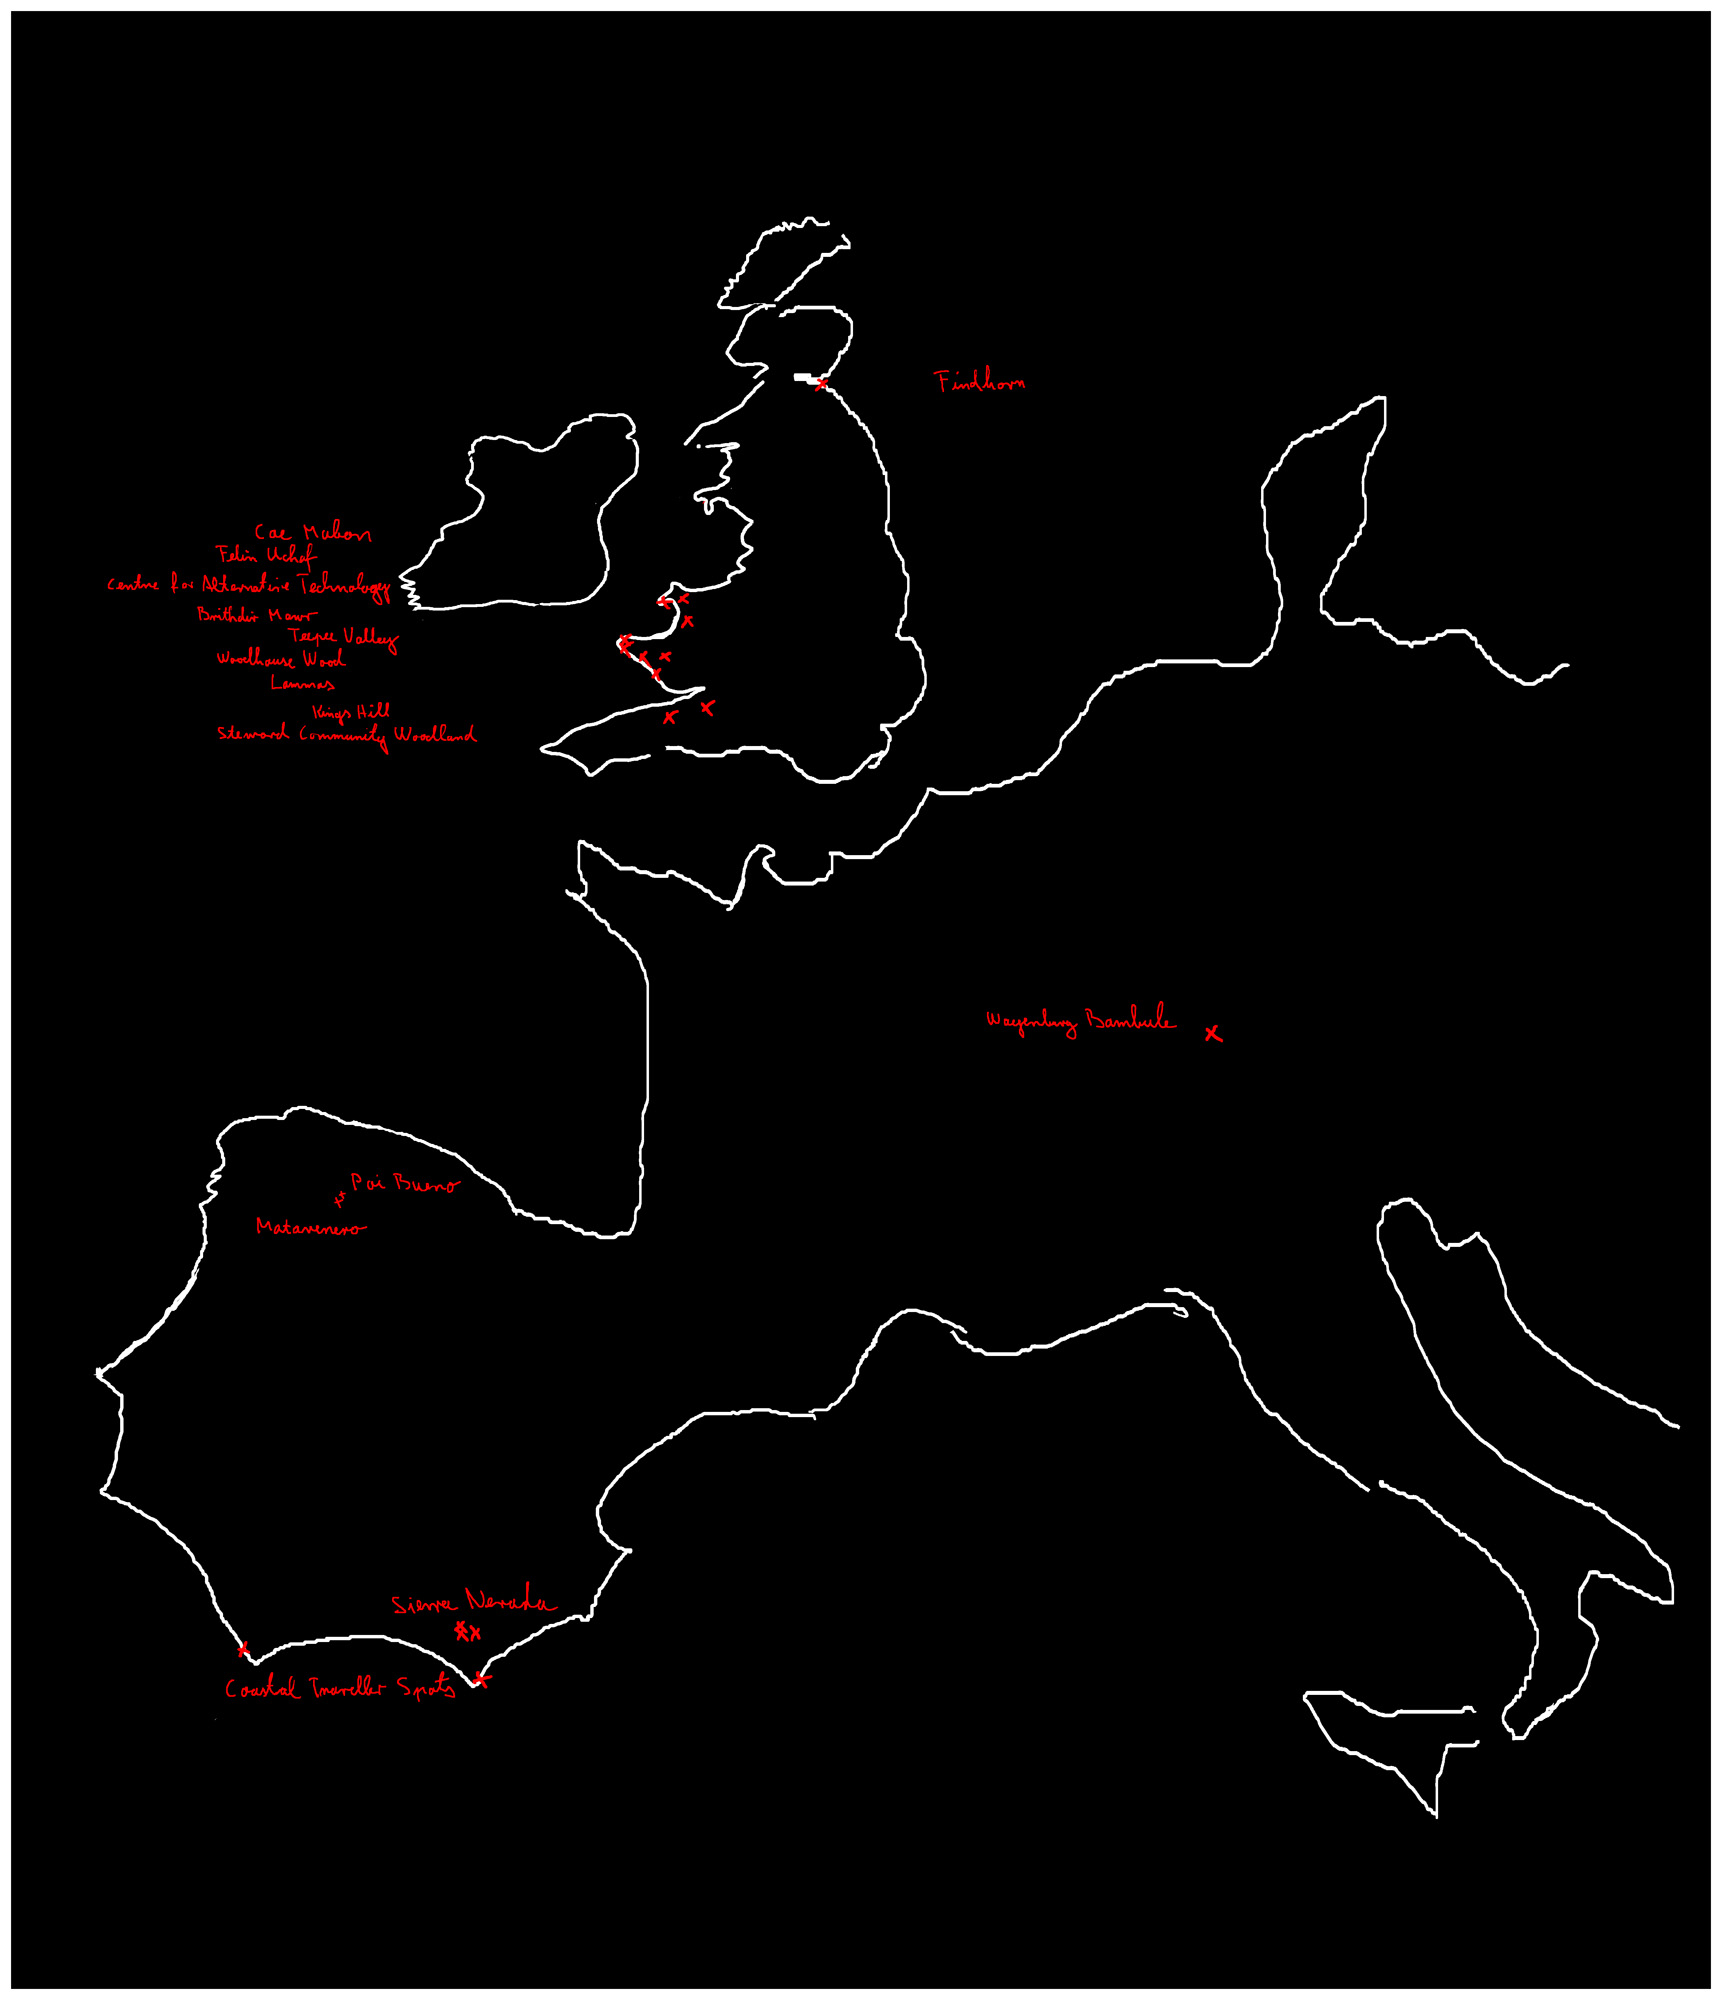 Findhorn
Cae Mabon
Felin Uchaf
Centre for Alternative Technology
Brithdir Mawr
Teepee Valley
Woodhouse Wood
Lammas
Kings Hill
Steward Community Woodland
Wagenburg Bambule
Poi Bueno
Matavenero
Sierra Nevada
Coastal Traveller Spots